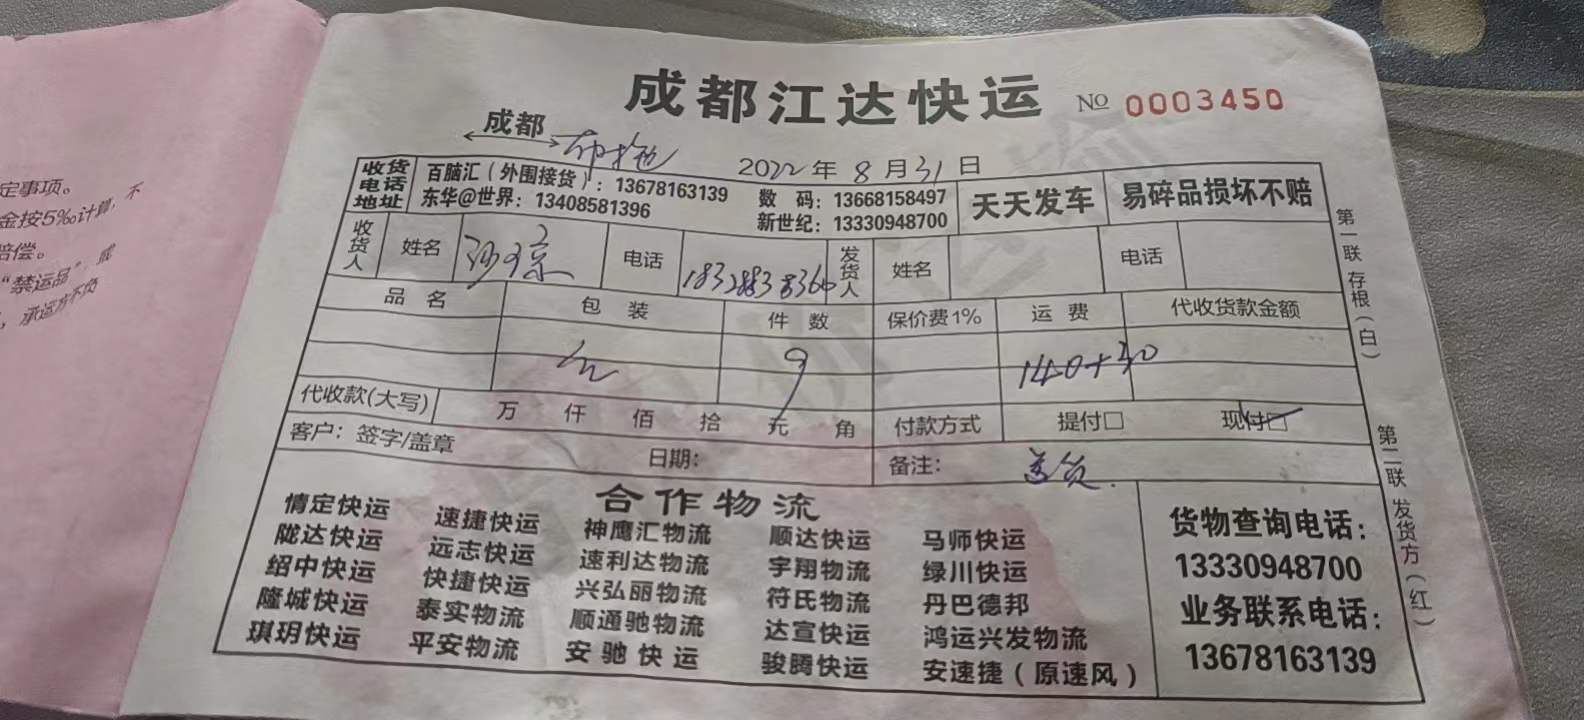 成都江达快运 № 0003450
成都
2022年8月31日
收货电话地址 百脑汇（外围接货）：13678163139 数 码：13668158497 天天发车 易碎品损坏不赔
东华@世界：13408581396 新世纪：13330948700
收货人 姓名 电话 18328838366 发货人 姓名 电话
品 名 包 装 件 数 保价费1% 运 费 代收货款金额
9 140+30
代收款(大写) 万 仟 佰 拾 元 角 付款方式 提付□ 现付□
客户：签字/盖章 日期： 备注： 送货.
合作物流
情定快运 速捷快运 神鹰汇物流 顺达快运 马师快运
陇达快运 远志快运 速利达物流 宇翔物流 绿川快运
绍中快运 快捷快运 兴弘丽物流 符氏物流 丹巴德邦
隆城快运 泰实物流 顺通驰物流 达宣快运 鸿运兴发物流
琪玥快运 平安物流 安驰快运 骏腾快运 安速捷（原速风）
货物查询电话：
13330948700
业务联系电话：
13678163139
第一联 存根（白）
第二联 发货方（红）
定事项。
金按5‰计算，不
赔偿。
“禁运品”或
，承运方不负